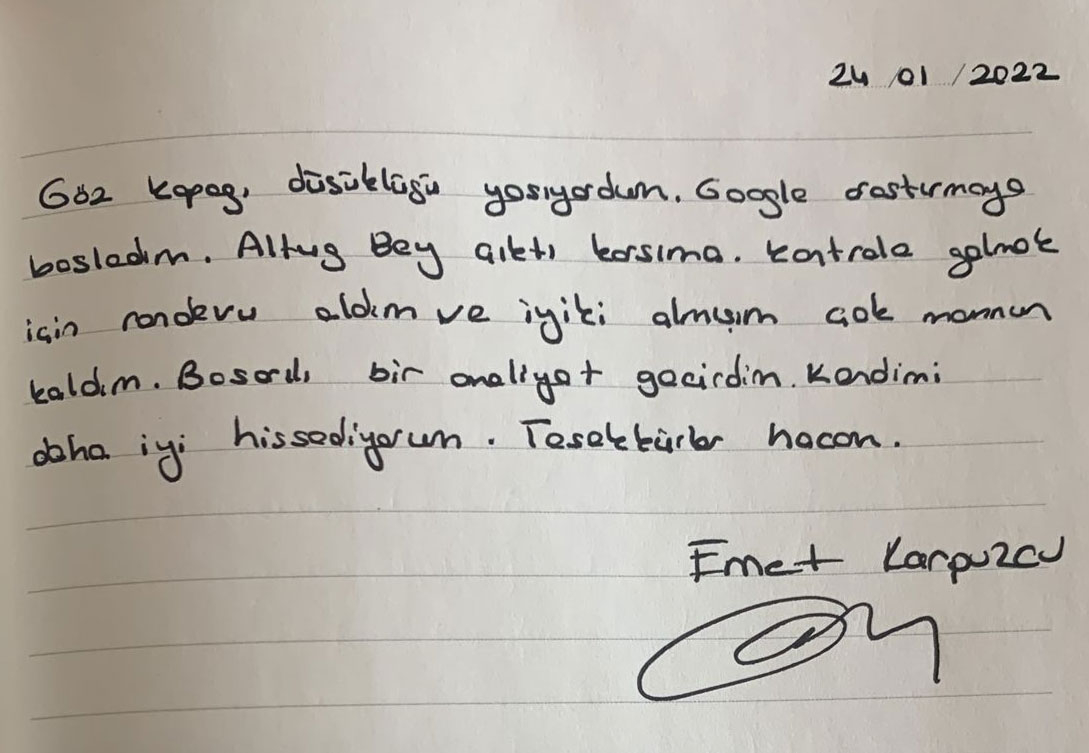 24/01/2022
Göz kapağı düşüklüğü yaşıyordum. Google araştırmaya
başladım. Altuğ Bey çıktı karşıma. Kontrole gelmek
için randevu aldım ve iyiki almışım çok memnun
kaldım. Başarılı bir ameliyat geçirdim. Kendimi
daha iyi hissediyorum. Teşekkürler hocam.
Emet Karpuzcu